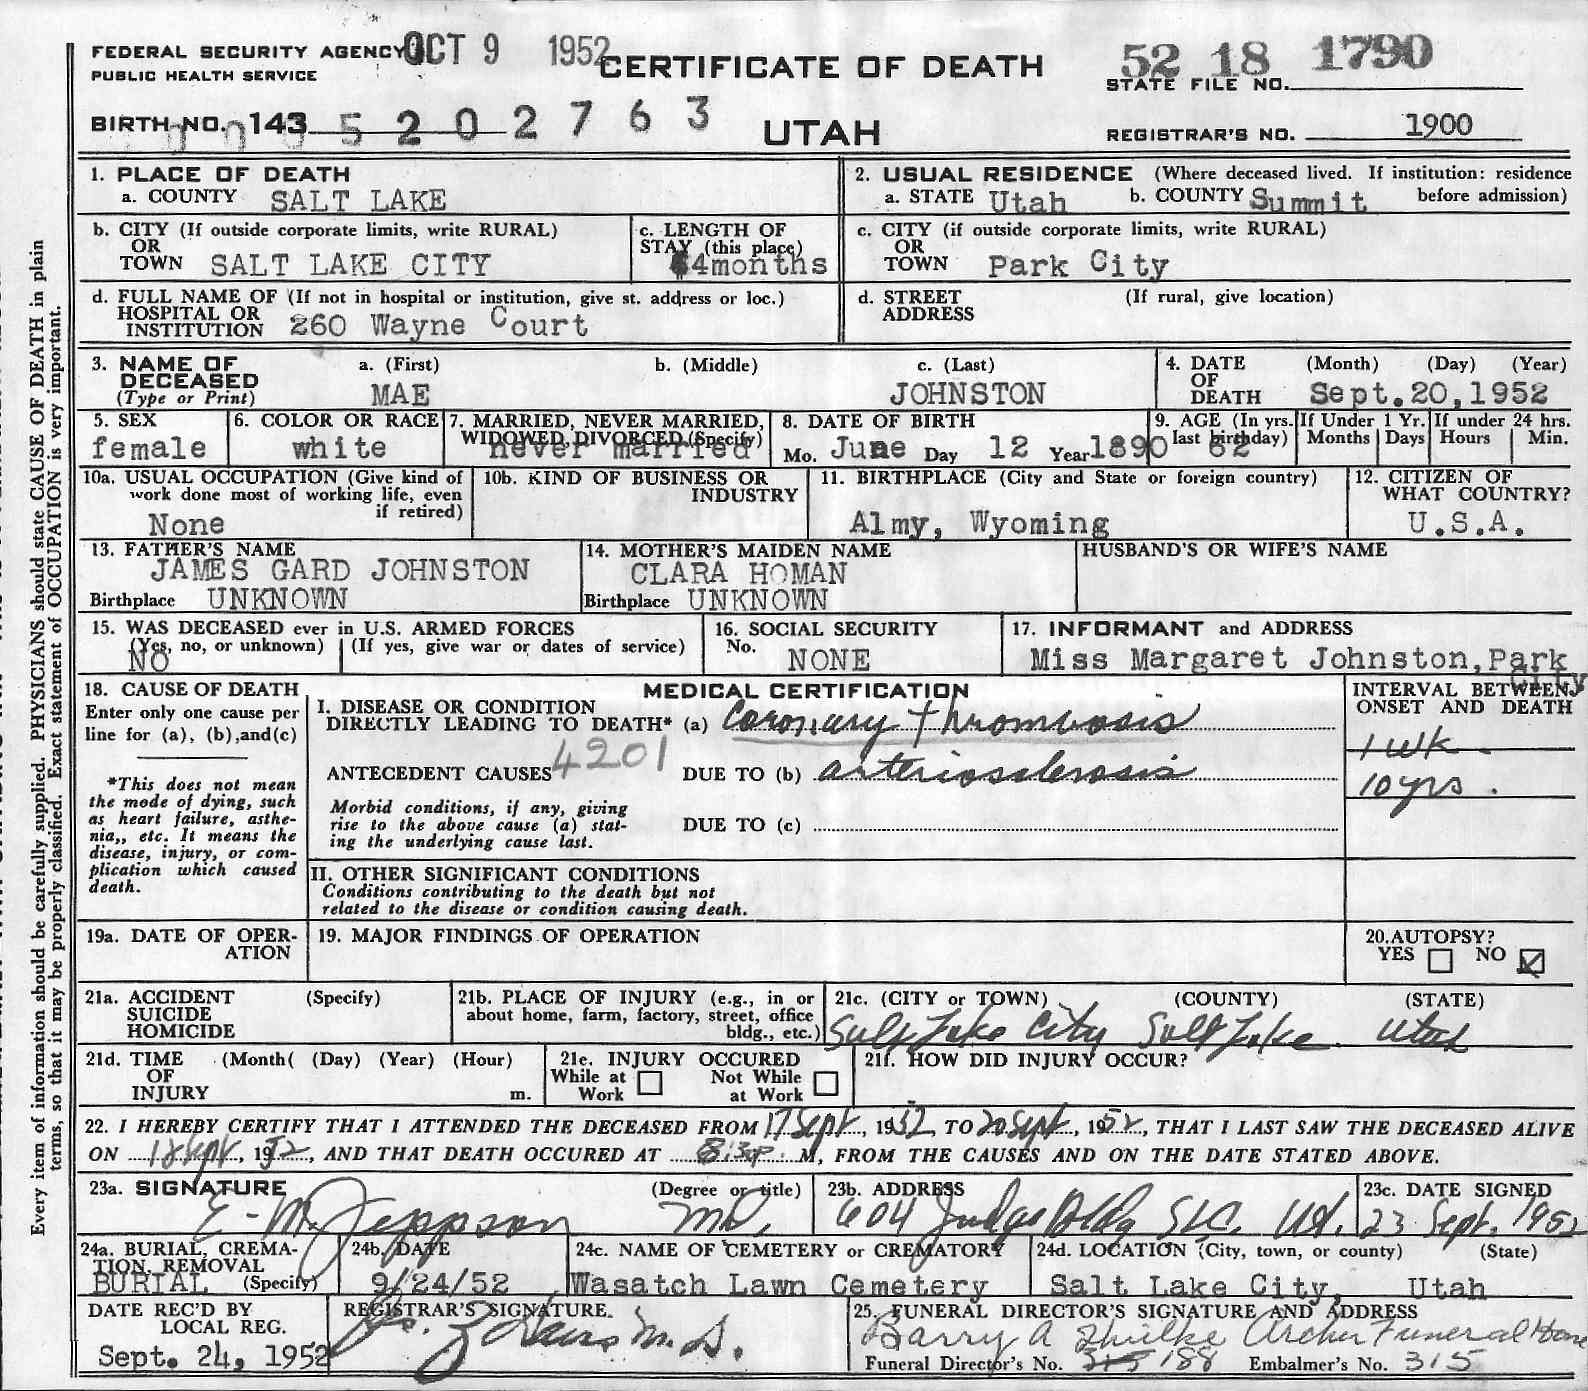 FEDERAL SECURITY AGENCY OCT 9 1952
PUBLIC HEALTH SERVICE
CERTIFICATE OF DEATH
52 18 1790
STATE FILE NO.
BIRTH NO. 143 5 2 0 2 7 6 3
UTAH
REGISTRAR'S NO. 1900
1. PLACE OF DEATH
a. COUNTY SALT LAKE
2. USUAL RESIDENCE (Where deceased lived. If institution: residence before admission)
a. STATE Utah b. COUNTY Summit
b. CITY (If outside corporate limits, write RURAL)
OR
TOWN SALT LAKE CITY
c. LENGTH OF
STAY (this place)
4months
c. CITY (if outside corporate limits, write RURAL)
OR
TOWN Park City
d. FULL NAME OF (If not in hospital or institution, give st. address or loc.)
HOSPITAL OR
INSTITUTION 260 Wayne Court
d. STREET (If rural, give location)
ADDRESS
3. NAME OF DECEASED
(Type or Print)
a. (First) b. (Middle) c. (Last)
MAE JOHNSTON
4. DATE OF DEATH (Month) (Day) (Year)
Sept.20,1952
5. SEX
female
6. COLOR OR RACE
white
7. MARRIED, NEVER MARRIED,
WIDOWED, DIVORCED (Specify)
never married
8. DATE OF BIRTH
Mo. June Day 12 Year 1890
9. AGE (In yrs. last birthday)
62
If Under 1 Yr.
Months Days
If under 24 hrs.
Hours Min.
10a. USUAL OCCUPATION (Give kind of
work done most of working life, even
if retired)
None
10b. KIND OF BUSINESS OR
INDUSTRY
11. BIRTHPLACE (City and State or foreign country)
Almy, Wyoming
12. CITIZEN OF
WHAT COUNTRY?
U.S.A.
13. FATHER'S NAME
JAMES GARD JOHNSTON
Birthplace UNKNOWN
14. MOTHER'S MAIDEN NAME
CLARA HOMAN
Birthplace UNKNOWN
HUSBAND'S OR WIFE'S NAME
15. WAS DECEASED ever in U.S. ARMED FORCES
(Yes, no, or unknown) (If yes, give war or dates of service)
NO
16. SOCIAL SECURITY
No. NONE
17. INFORMANT and ADDRESS
Miss Margaret Johnston, Park
City
18. CAUSE OF DEATH
Enter only one cause per
line for (a), (b),and(c)
*This does not mean
the mode of dying, such
as heart failure, asthe-
nia,, etc. It means the
disease, injury, or com-
plication which caused
death.
MEDICAL CERTIFICATION
I. DISEASE OR CONDITION
DIRECTLY LEADING TO DEATH* (a) Coronary Thrombosis
4201
ANTECEDENT CAUSES DUE TO (b) arteriosclerosis
Morbid conditions, if any, giving
rise to the above cause (a) stat-
ing the underlying cause last.
DUE TO (c)
II. OTHER SIGNIFICANT CONDITIONS
Conditions contributing to the death but not
related to the disease or condition causing death.
INTERVAL BETWEEN
ONSET AND DEATH
1 wk
10 yrs.
19a. DATE OF OPER-
ATION
19. MAJOR FINDINGS OF OPERATION
20.AUTOPSY?
YES NO
21a. ACCIDENT (Specify)
SUICIDE
HOMICIDE
21b. PLACE OF INJURY (e.g., in or
about home, farm, factory, street, office
bldg., etc.)
21c. (CITY or TOWN) (COUNTY) (STATE)
Salt Lake City Salt Lake Utah
21d. TIME (Month( (Day) (Year) (Hour)
OF
INJURY m.
21e. INJURY OCCURED
While at Work Not While at Work
21f. HOW DID INJURY OCCUR?
22. I HEREBY CERTIFY THAT I ATTENDED THE DECEASED FROM 17 Sept, 1952 TO 20 Sept, 1952, THAT I LAST SAW THE DECEASED ALIVE
ON 18 Sept, 1952, AND THAT DEATH OCCURED AT 8:30P M, FROM THE CAUSES AND ON THE DATE STATED ABOVE.
23a. SIGNATURE (Degree or title)
E-M. Jeppson MD.
23b. ADDRESS
604 Judge Bldg SLC. Ut.
23c. DATE SIGNED
23 Sept. 1952
24a. BURIAL, CREMA-
TION, REMOVAL
BURIAL (Specify)
24b. DATE
9/24/52
24c. NAME OF CEMETERY or CREMATORY
Wasatch Lawn Cemetery
24d. LOCATION (City, town, or county) (State)
Salt Lake City, Utah
DATE REC'D BY
LOCAL REG.
Sept. 24, 1952
REGISTRAR'S SIGNATURE.
M.D.
25. FUNERAL DIRECTOR'S SIGNATURE AND ADDRESS
Barry A Archer Funeral Home
Funeral Director's No. 315 188 Embalmer's No. 315
Every item of information should be carefully supplied. PHYSICIANS should state CAUSE OF DEATH in plain
terms, so that it may be properly classified. Exact statement of OCCUPATION is very important.